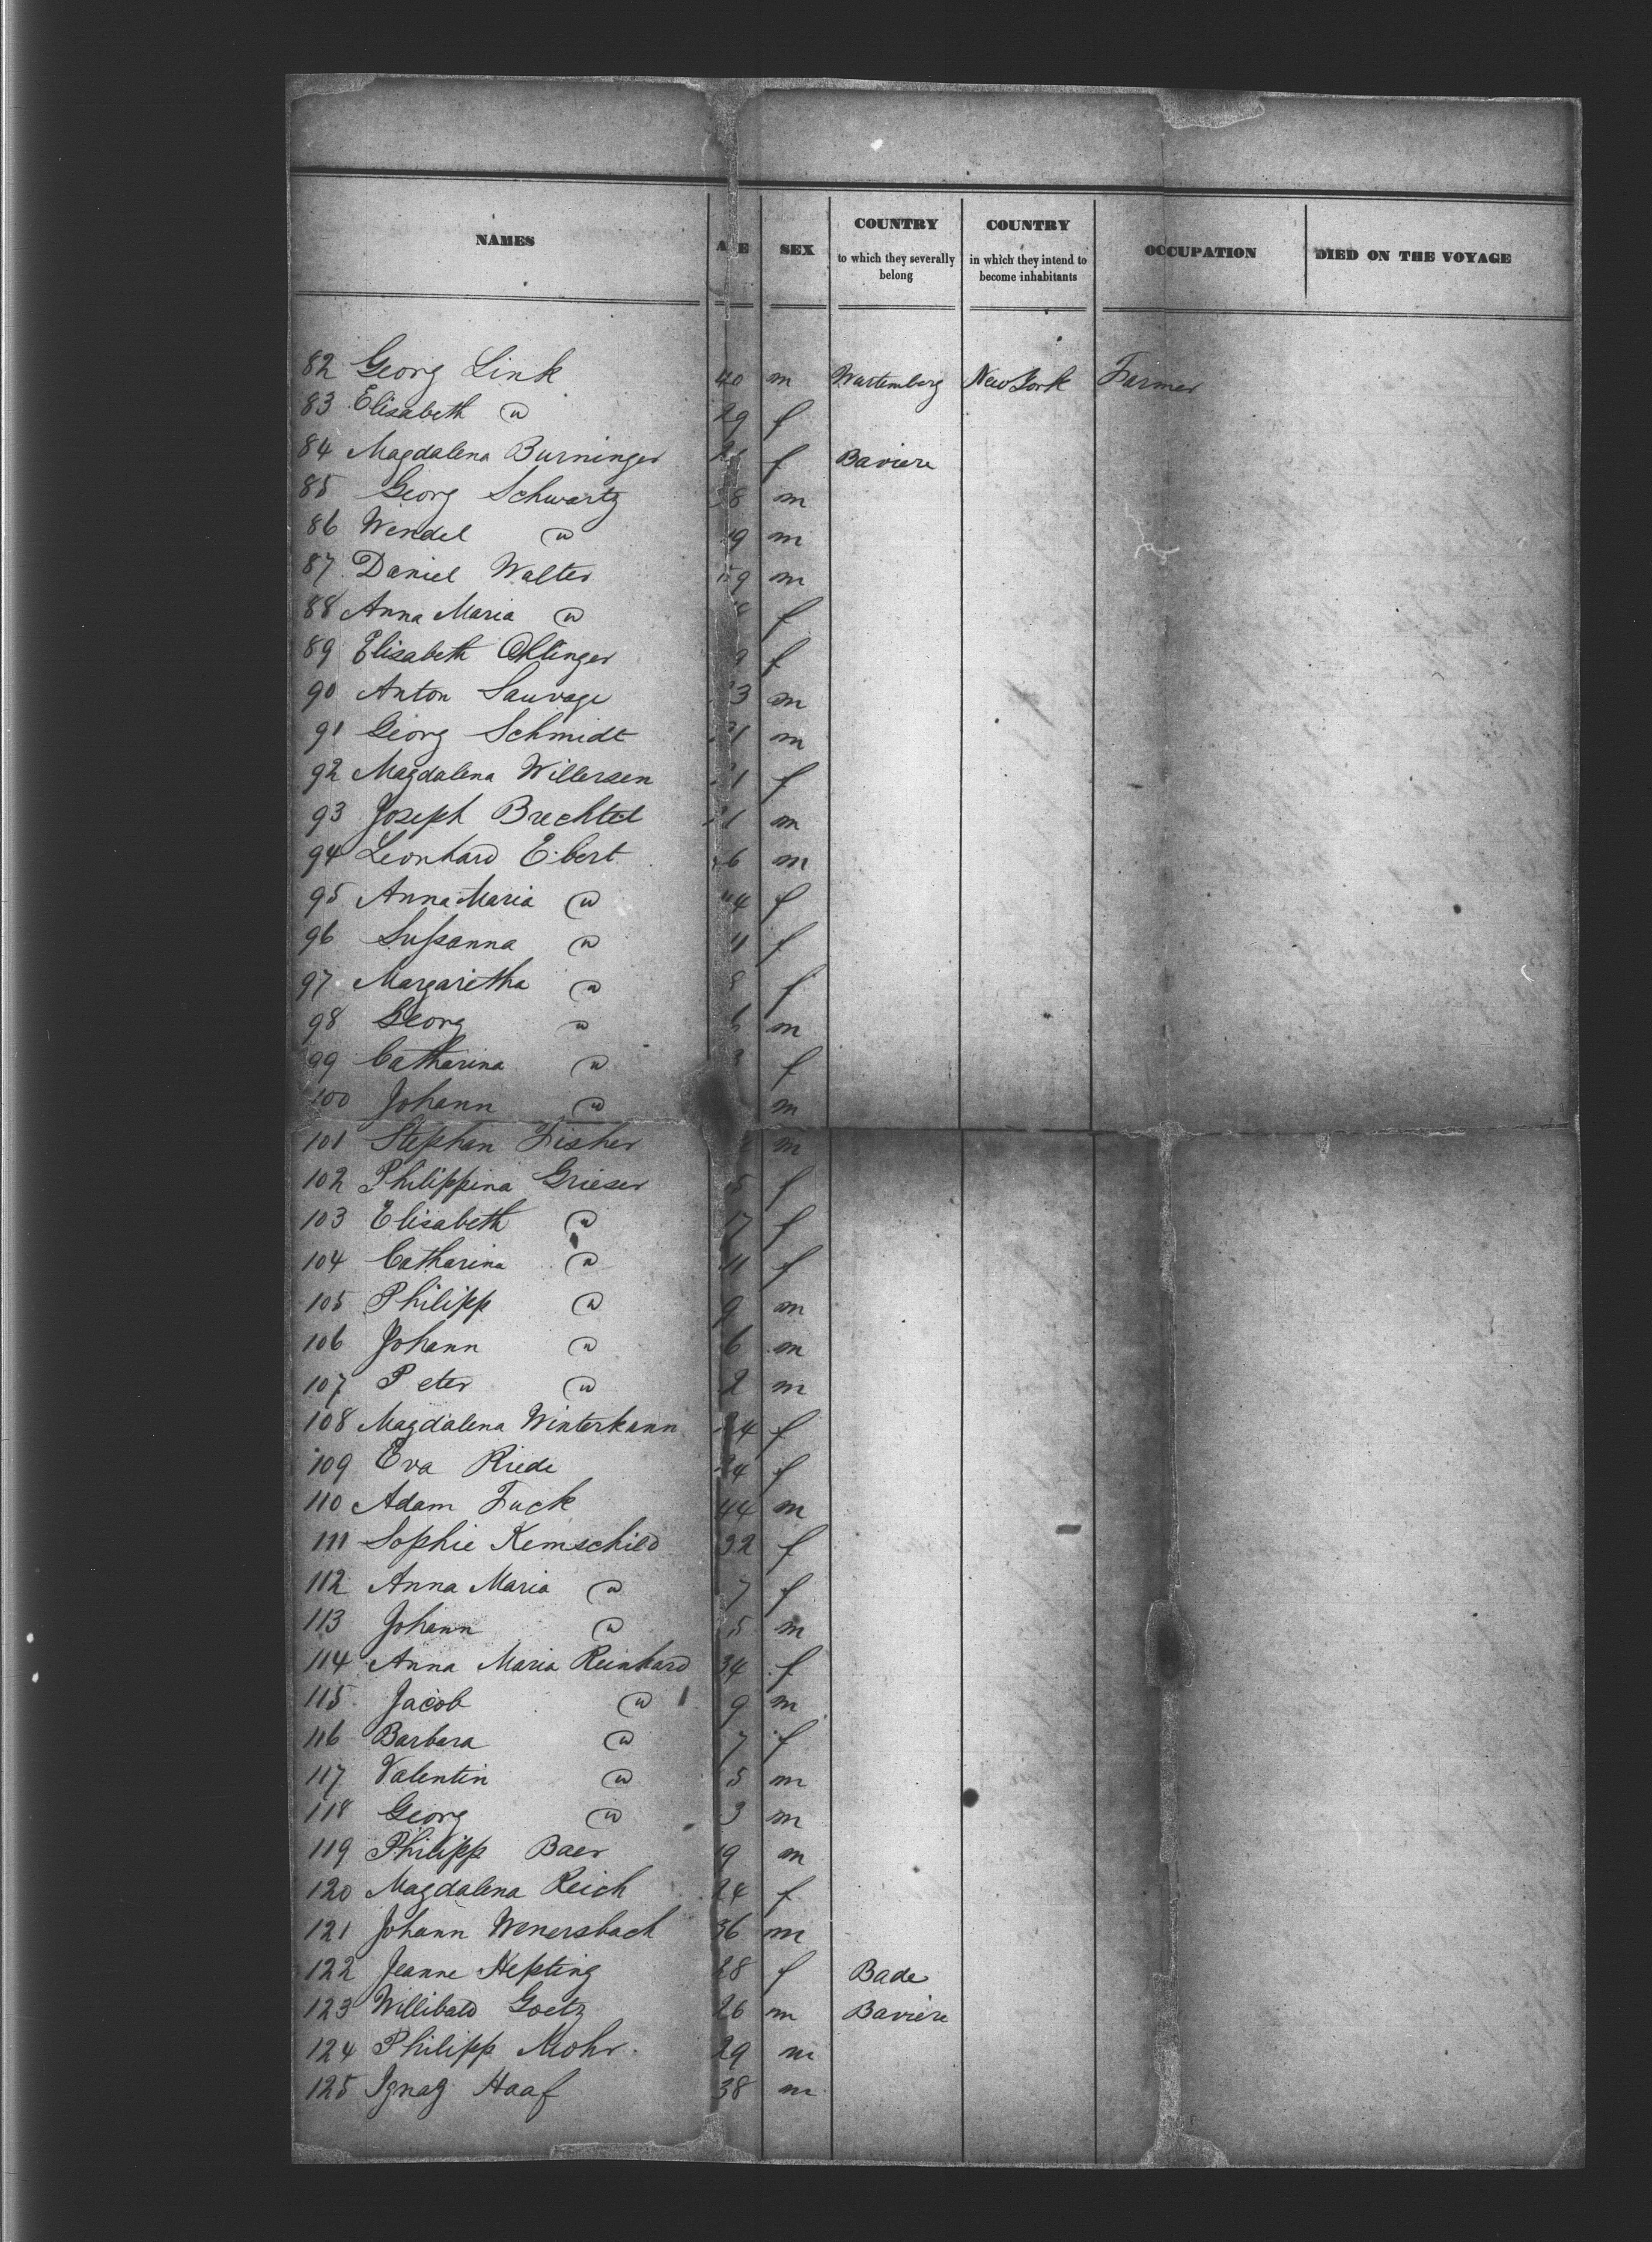 NAMES AGE SEX COUNTRY to which they severally belong COUNTRY in which they intend to become inhabitants OCCUPATION DIED ON THE VOYAGE
82 Georg Link 40 m Wurtemberg New York Farmer
83 Elisabeth " 29 f
84 Magdalena Burninger f Baviere
85 Georg Schwartz m
86 Wendel " m
87 Daniel Walter m
88 Anna Maria " f
89 Elisabeth Ohlinger f
90 Anton Sauvage m
91 Georg Schmidt m
92 Magdalena Willersen f
93 Joseph Brechtel m
94 Leonhard Ebert m
95 Anna Maria " 44 f
96 Susanna " 11 f
97 Margaretha " f
98 Georg " m
99 Catharina " f
100 Johann " m
101 Stephan Fisher m
102 Philippina Grieser f
103 Elisabeth " 17 f
104 Catharina " 11 f
105 Philipp " 9 m
106 Johann " 6 m
107 Peter " 2 m
108 Magdalena Winterkann 24 f
109 Eva Riede 24 f
110 Adam Fuck 44 m
111 Sophie Kemschild 32 f
112 Anna Maria " 7 f
113 Johann " 5 m
114 Anna Maria Reinhard 34 f
115 Jacob " 9 m
116 Barbara " 7 f
117 Valentin " 5 m
118 Georg " 3 m
119 Philipp Baer 19 m
120 Magdalena Reich 24 f
121 Johann Wenersbach 36 m
122 Jeanne Hepting 28 f Bade
123 Willibald Goetz 26 m Baviere
124 Philipp Mohr 29 m
125 Ignaz Haaf 38 m